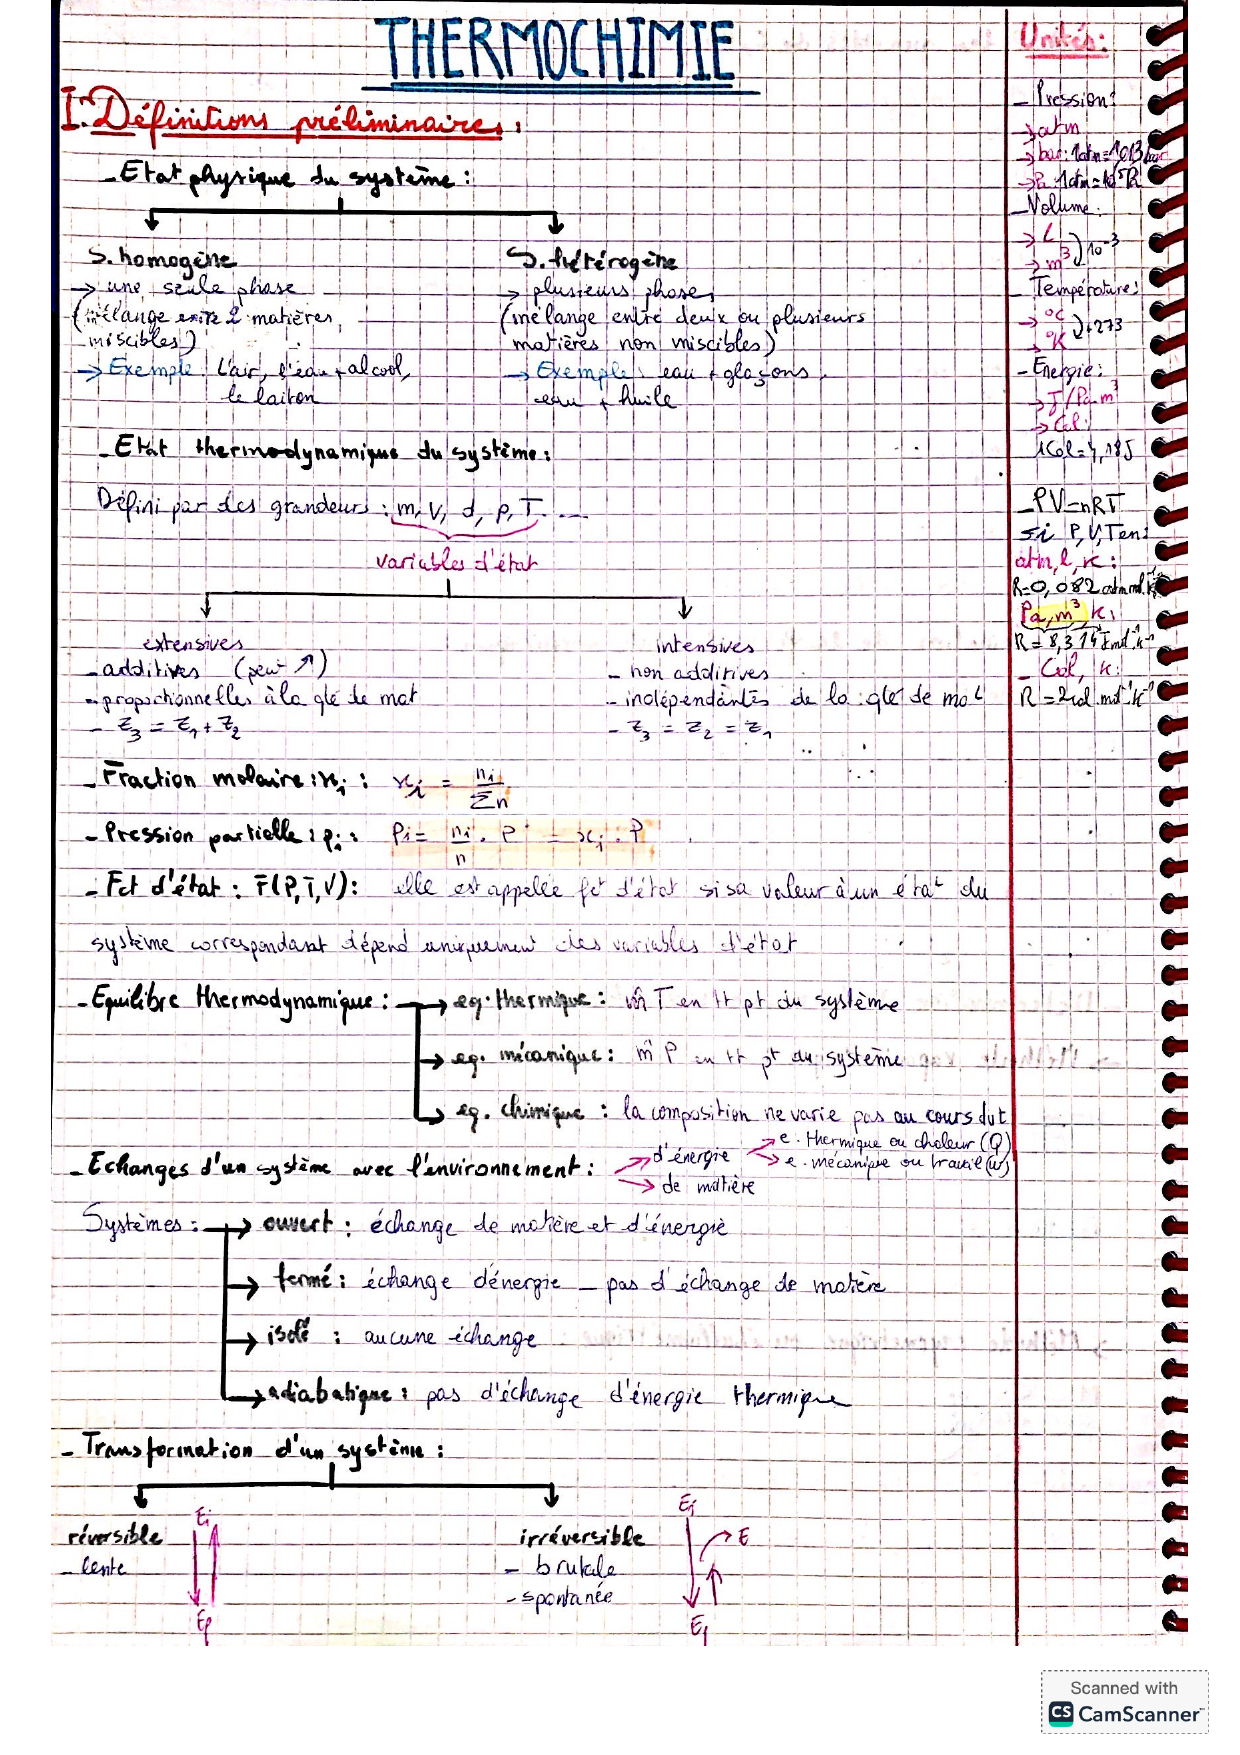 THERMOCHIMIE
I. Définitions préliminaires :
- Etat physique du système :
S. homogène
→ une seule phase
(mélange entre 2 matières
miscibles)
→ Exemple : L'air, l'eau + alcool,
le laiton
S. hétérogène
→ plusieurs phases
(mélange entre deux ou plusieurs
matières non miscibles)
→ Exemple : eau + glaçons,
eau + huile
- Etat thermodynamique du système :
Défini par des grandeurs : m, V, d, p, T. ....
variables d'état
extensives
- additives (peut ↗)
- proportionnelles à la qté de mat
- Z3 = Z1 + Z2
intensives
- non additives
- indépendantes de la qté de mat
- Z3 = Z2 = Z1
- Fraction molaire : xi : xi = ni / Σn
- Pression partielle : pi : Pi = ni/n . P = xi . P
- Fct d'état : F(P,T,V) : elle est appelée fct d'état si sa valeur à un état du
système correspondant dépend uniquement des variables d'état
- Equilibre thermodynamique : → eq. thermique : m̂ T en tt pt du système
→ eq. mécanique : m̂ P en tt pt du système
→ eq. chimique : la composition ne varie pas au cours du t
- Echanges d'un système avec l'environnement : → d'énergie → e. thermique ou chaleur (Q)
→ e. mécanique ou travail (w)
→ de matière
Systèmes : → ouvert : échange de matière et d'énergie
→ fermé : échange d'énergie _ pas d'échange de matière
→ isolé : aucune échange
→ adiabatique : pas d'échange d'énergie thermique
- Transformation d'un système :
réversible
- lente
Ei
Ef
irréversible
- brutale
- spontanée
Ei
E
Ef
Unités :
- Pression :
→ atm
→ bar : 1atm = 1,013 bar
→ Pa 1atm = 10^5 Pa
- Volume :
→ L
→ m³ 10^-3
- Température :
→ °C
→ °K +273
- Energie :
→ J/Pa.m³
→ Cal :
1Cal = 4,18J
- PV = nRT
si P, V, T en :
atm, l, K :
R = 0,082 atm.mol.K
Pa, m³, K,
R = 8,314 J.mol⁻¹.K⁻¹
- Cal, K :
R = 2cal.mol⁻¹.K⁻¹
Scanned with
CS CamScanner